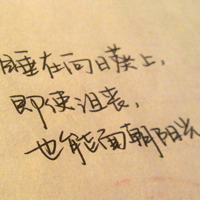 睡在向日葵上,
即使沮丧,
也能面朝阳光